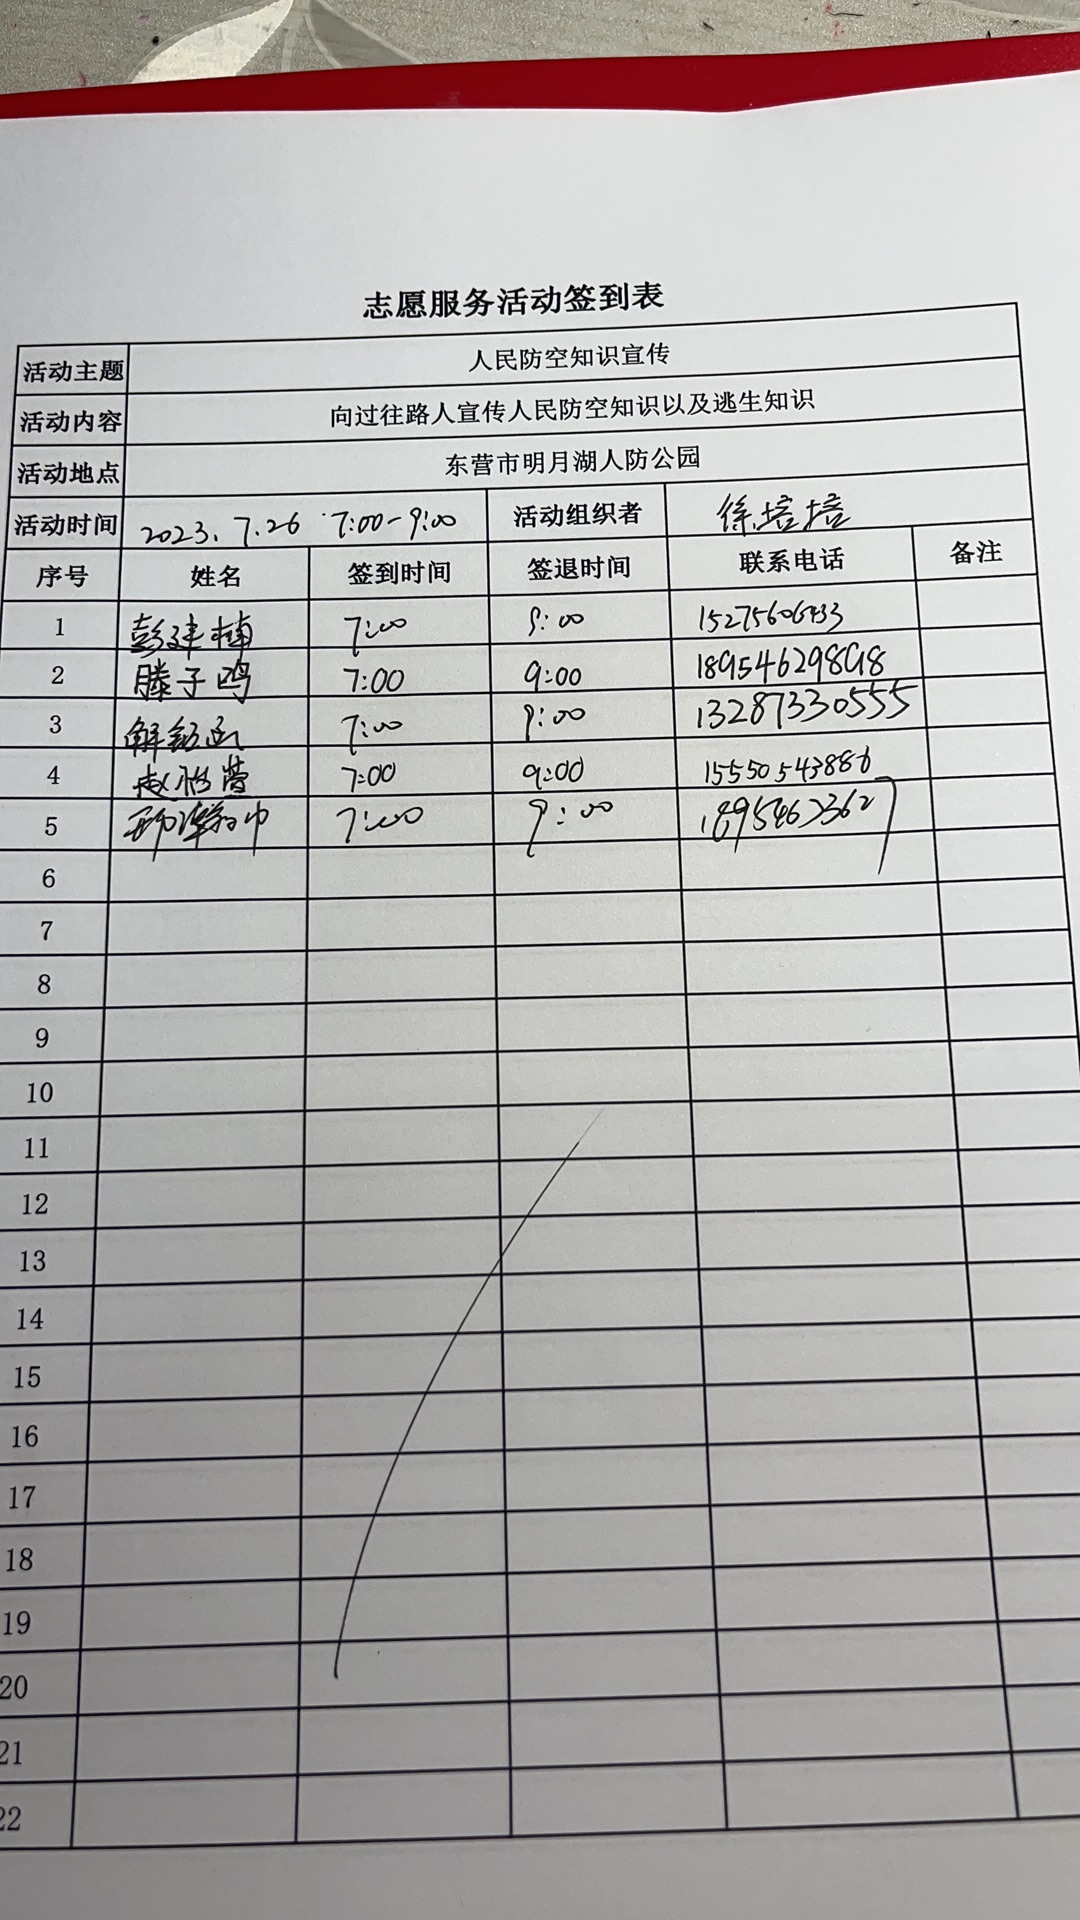 志愿服务活动签到表
活动主题 人民防空知识宣传
活动内容 向过往路人宣传人民防空知识以及逃生知识
活动地点 东营市明月湖人防公园
活动时间 2023.7.26 7:00-9:00 活动组织者 徐培培
序号 姓名 签到时间 签退时间 联系电话 备注
1 彭建楠 7:00 9:00 15275606433
2 滕子鸣 7:00 9:00 18954629898
3 7:00 9:00 13287330555
4 赵怡萱 7:00 9:00 15550543886
5 7:00 9:00
6
7
8
9
10
11
12
13
14
15
16
17
18
19
20
21
22